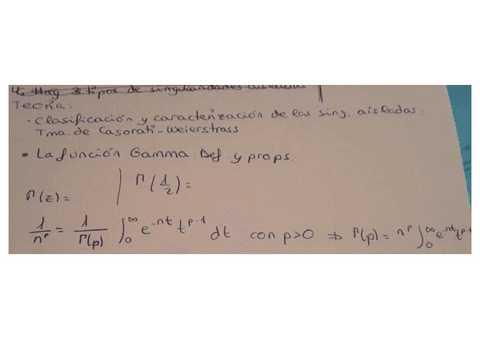 4. Hay 3 tipos de singularidades aisladas
Teoría:
· Clasificación y caracterización de las sing. aisladas:
Tma. de Casorati-Weierstrass
• La función Gamma: Def y props.
Γ(z)= | Γ(1/2)=
1/n^p = 1/Γ(p) ∫₀^∞ e^-nt t^p-1 dt con p>0 ⇒ Γ(p) = n^p ∫₀^∞ e^-nt t^p-1